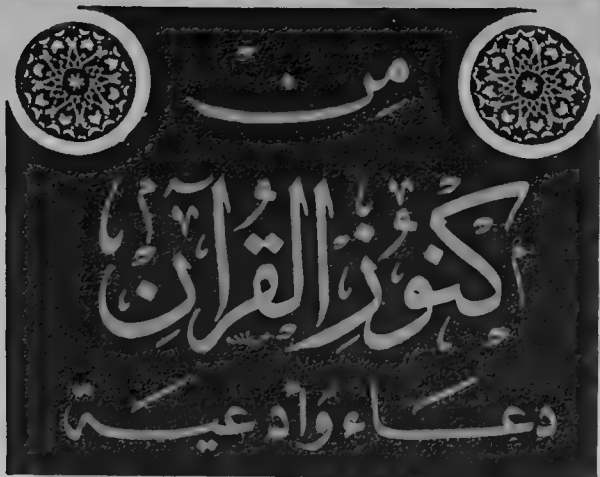 من
كنوز القرآن
دعاء وأدعية